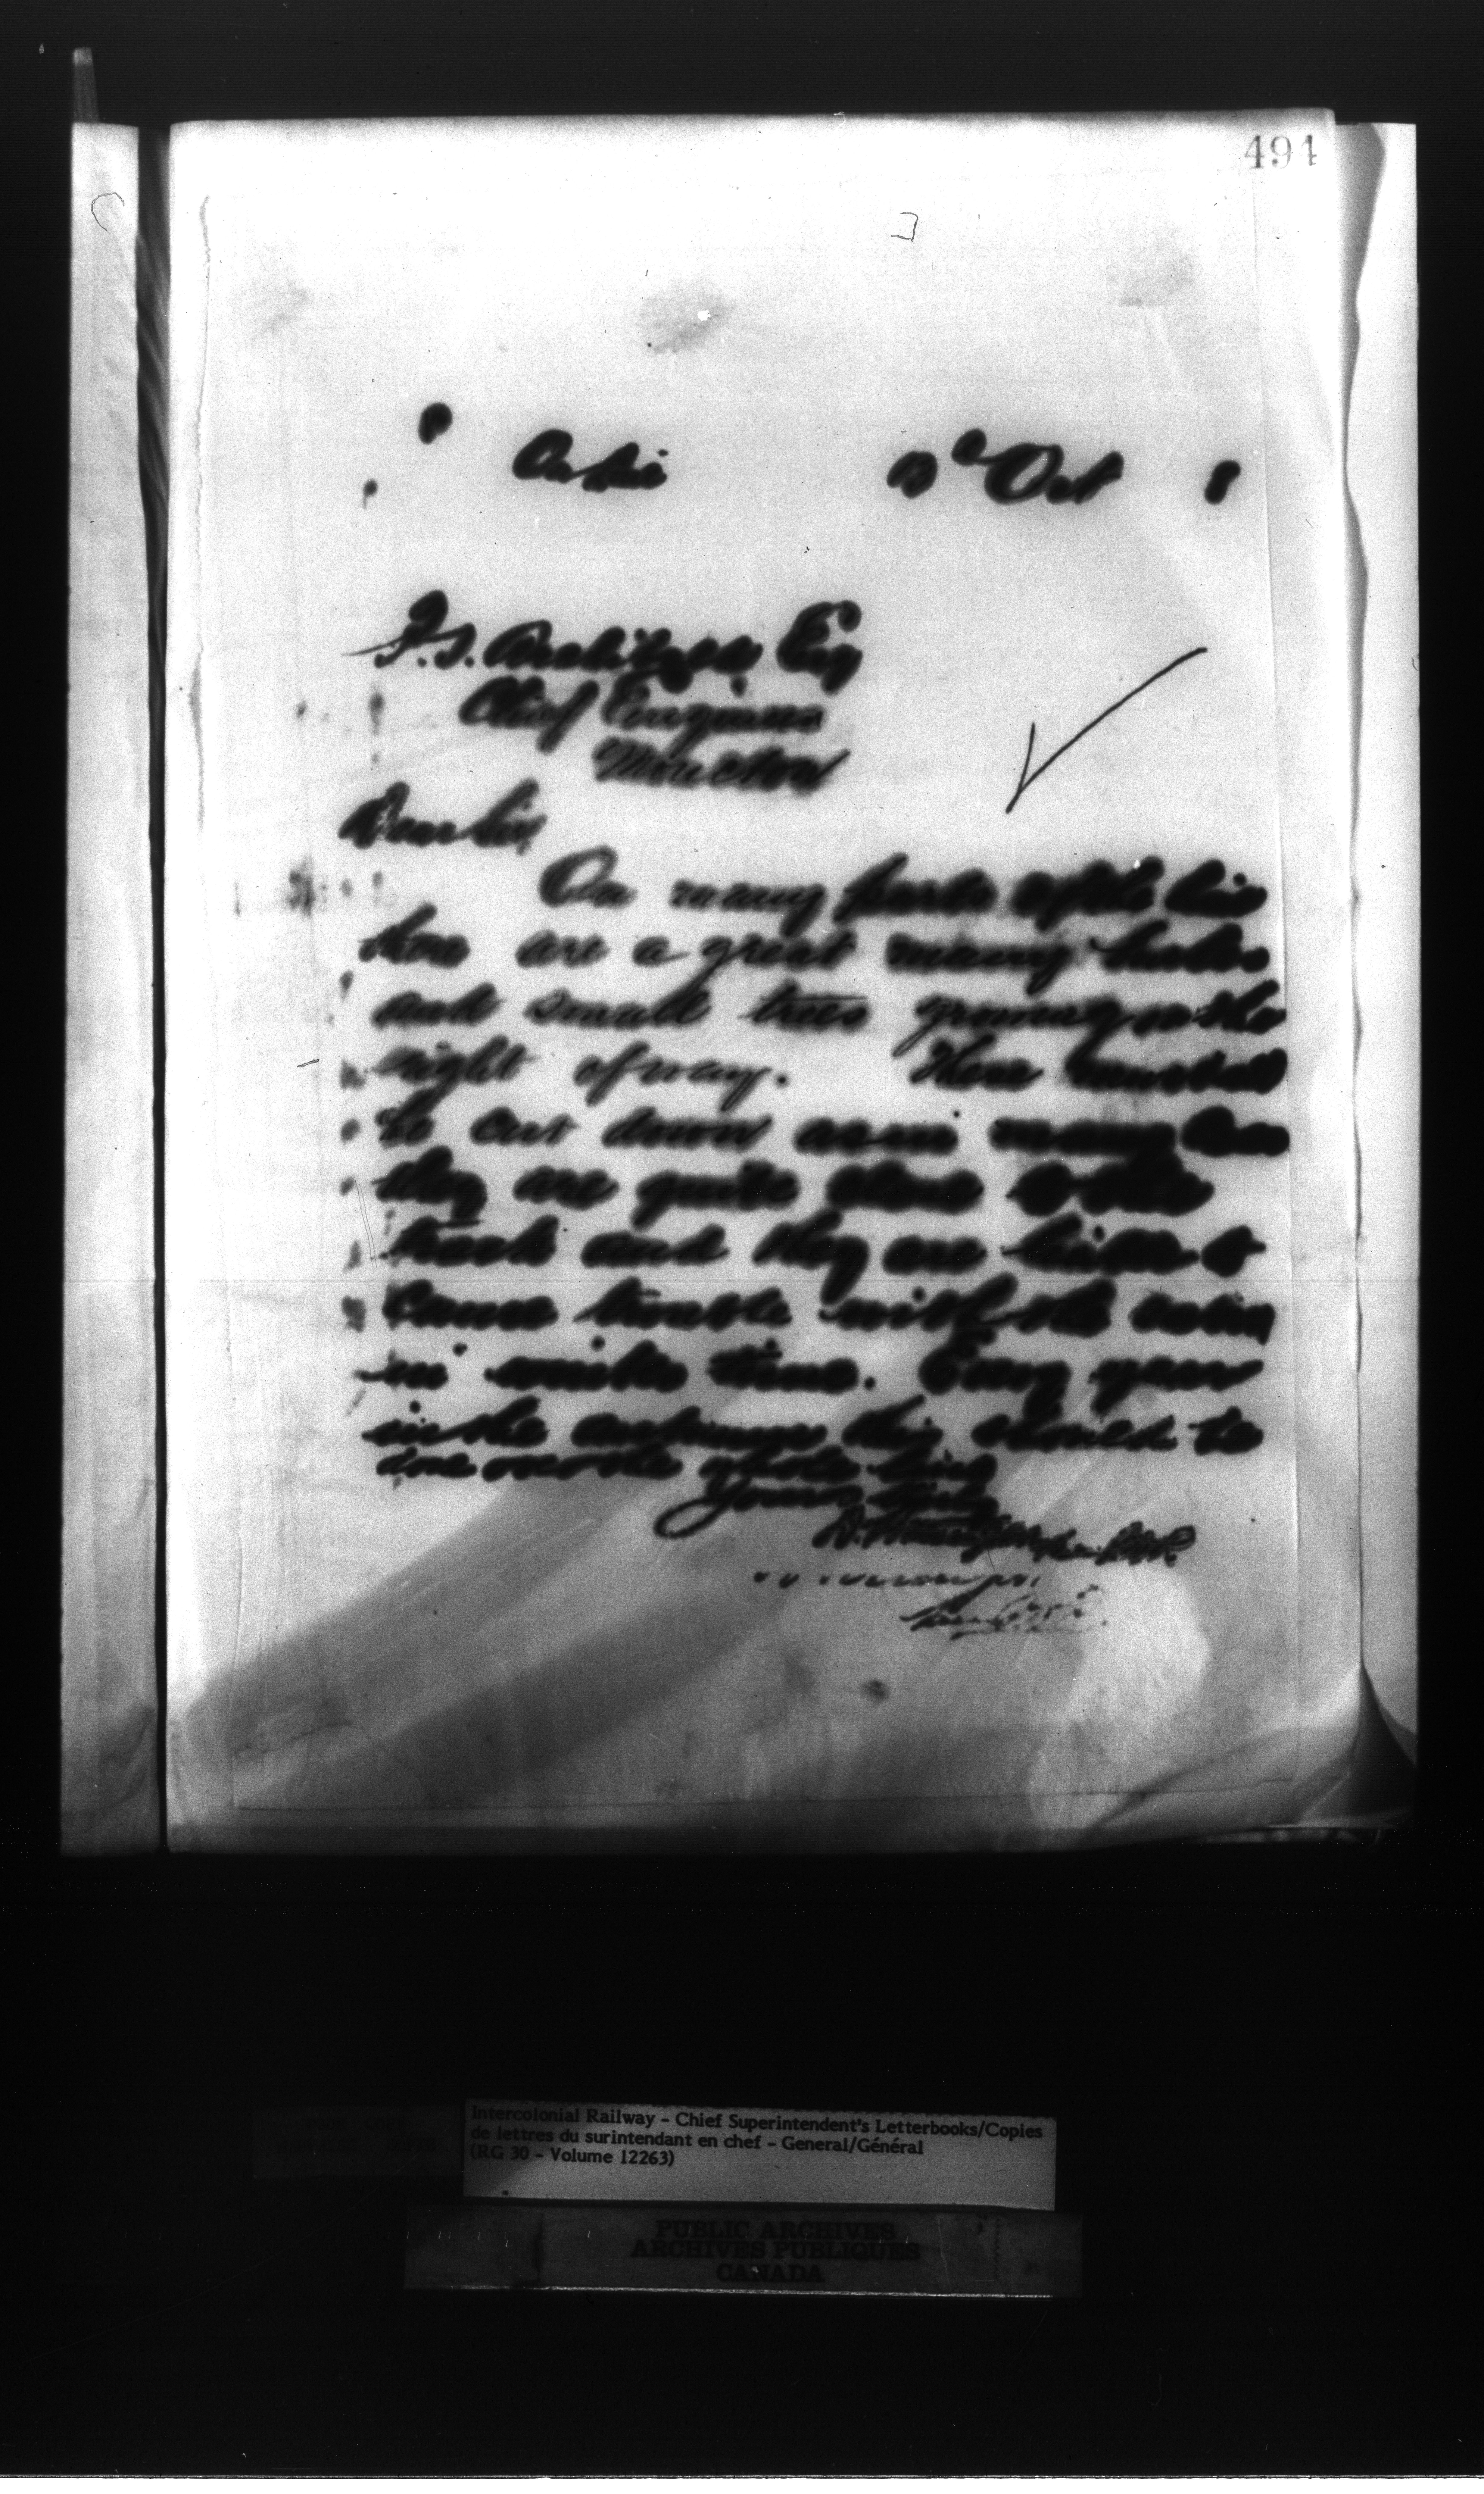 491
Oct 8
Chief Engineer
Moncton
Dear Sir,
On many parts of the line
there are a great many bushes
and small trees growing on the
right of way. These must all
be cut down as in many places
they are quite close to the
track and they are liable to
cause trouble with the
in winter time. Every year
in the autumn this should be
done over the whole line
Yours truly
D. Pottinger
Intercolonial Railway - Chief Superintendent's Letterbooks/Copies
de lettres du surintendant en chef - General/Général
(RG 30 - Volume 12263)
PUBLIC ARCHIVES
ARCHIVES PUBLIQUES
CANADA